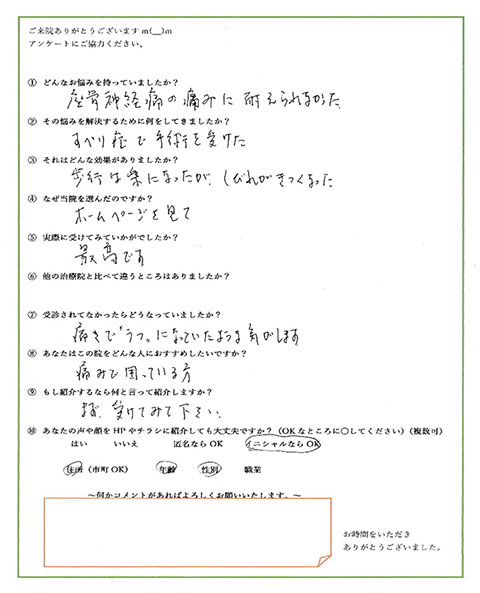 ご来院ありがとうございますm(__)m
アンケートにご協力ください。
① どんなお悩みを持っていましたか?
座骨神経痛の痛みに耐えられなかった
② その悩みを解決するために何をしてきましたか?
すべり症で手術を受けた
③ それはどんな効果がありましたか?
歩行は楽になったが、しびれがきつくなった
④ なぜ当院を選んだのですか?
ホームページを見て
⑤ 実際に受けてみていかがでしたか?
最高です
⑥ 他の治療院と比べて違うところはありましたか?
⑦ 受診されてなかったらどうなっていましたか?
痛さで"うつ"になっていたような気がします
⑧ あなたはこの院をどんな人におすすめしたいですか?
痛みで困っている方
⑨ もし紹介するなら何と言って紹介しますか?
まず、受けてみて下さい。
⑩ あなたの声や顔をHPやチラシに紹介しても大丈夫ですか?(OKなところに○してください)(複数可)
はい いいえ 匿名ならOK イニシャルならOK
住所(市町OK) 年齢 性別 職業
~何かコメントがあればよろしくお願いいたします。~
お時間をいただき
ありがとうございました。